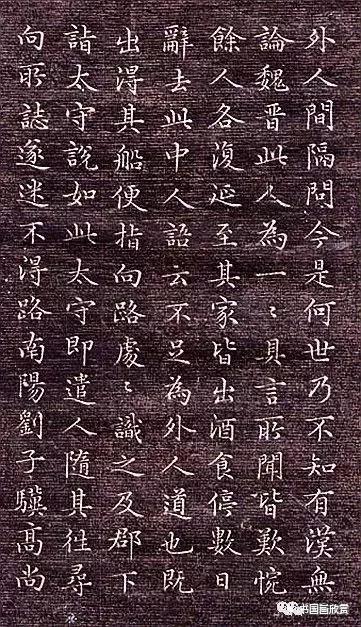 外人間隔問今是何世乃不知有漢無
論魏晉此人為一〻具言所聞皆歎惋
餘人各復延至其家皆出酒食停數日
辭去此中人語云不足為外人道也既
出得其船便指向路處〻識之及郡下
詣太守說如此太守即遣人隨其往尋
向所誌遂迷不得路南陽劉子驥高尚